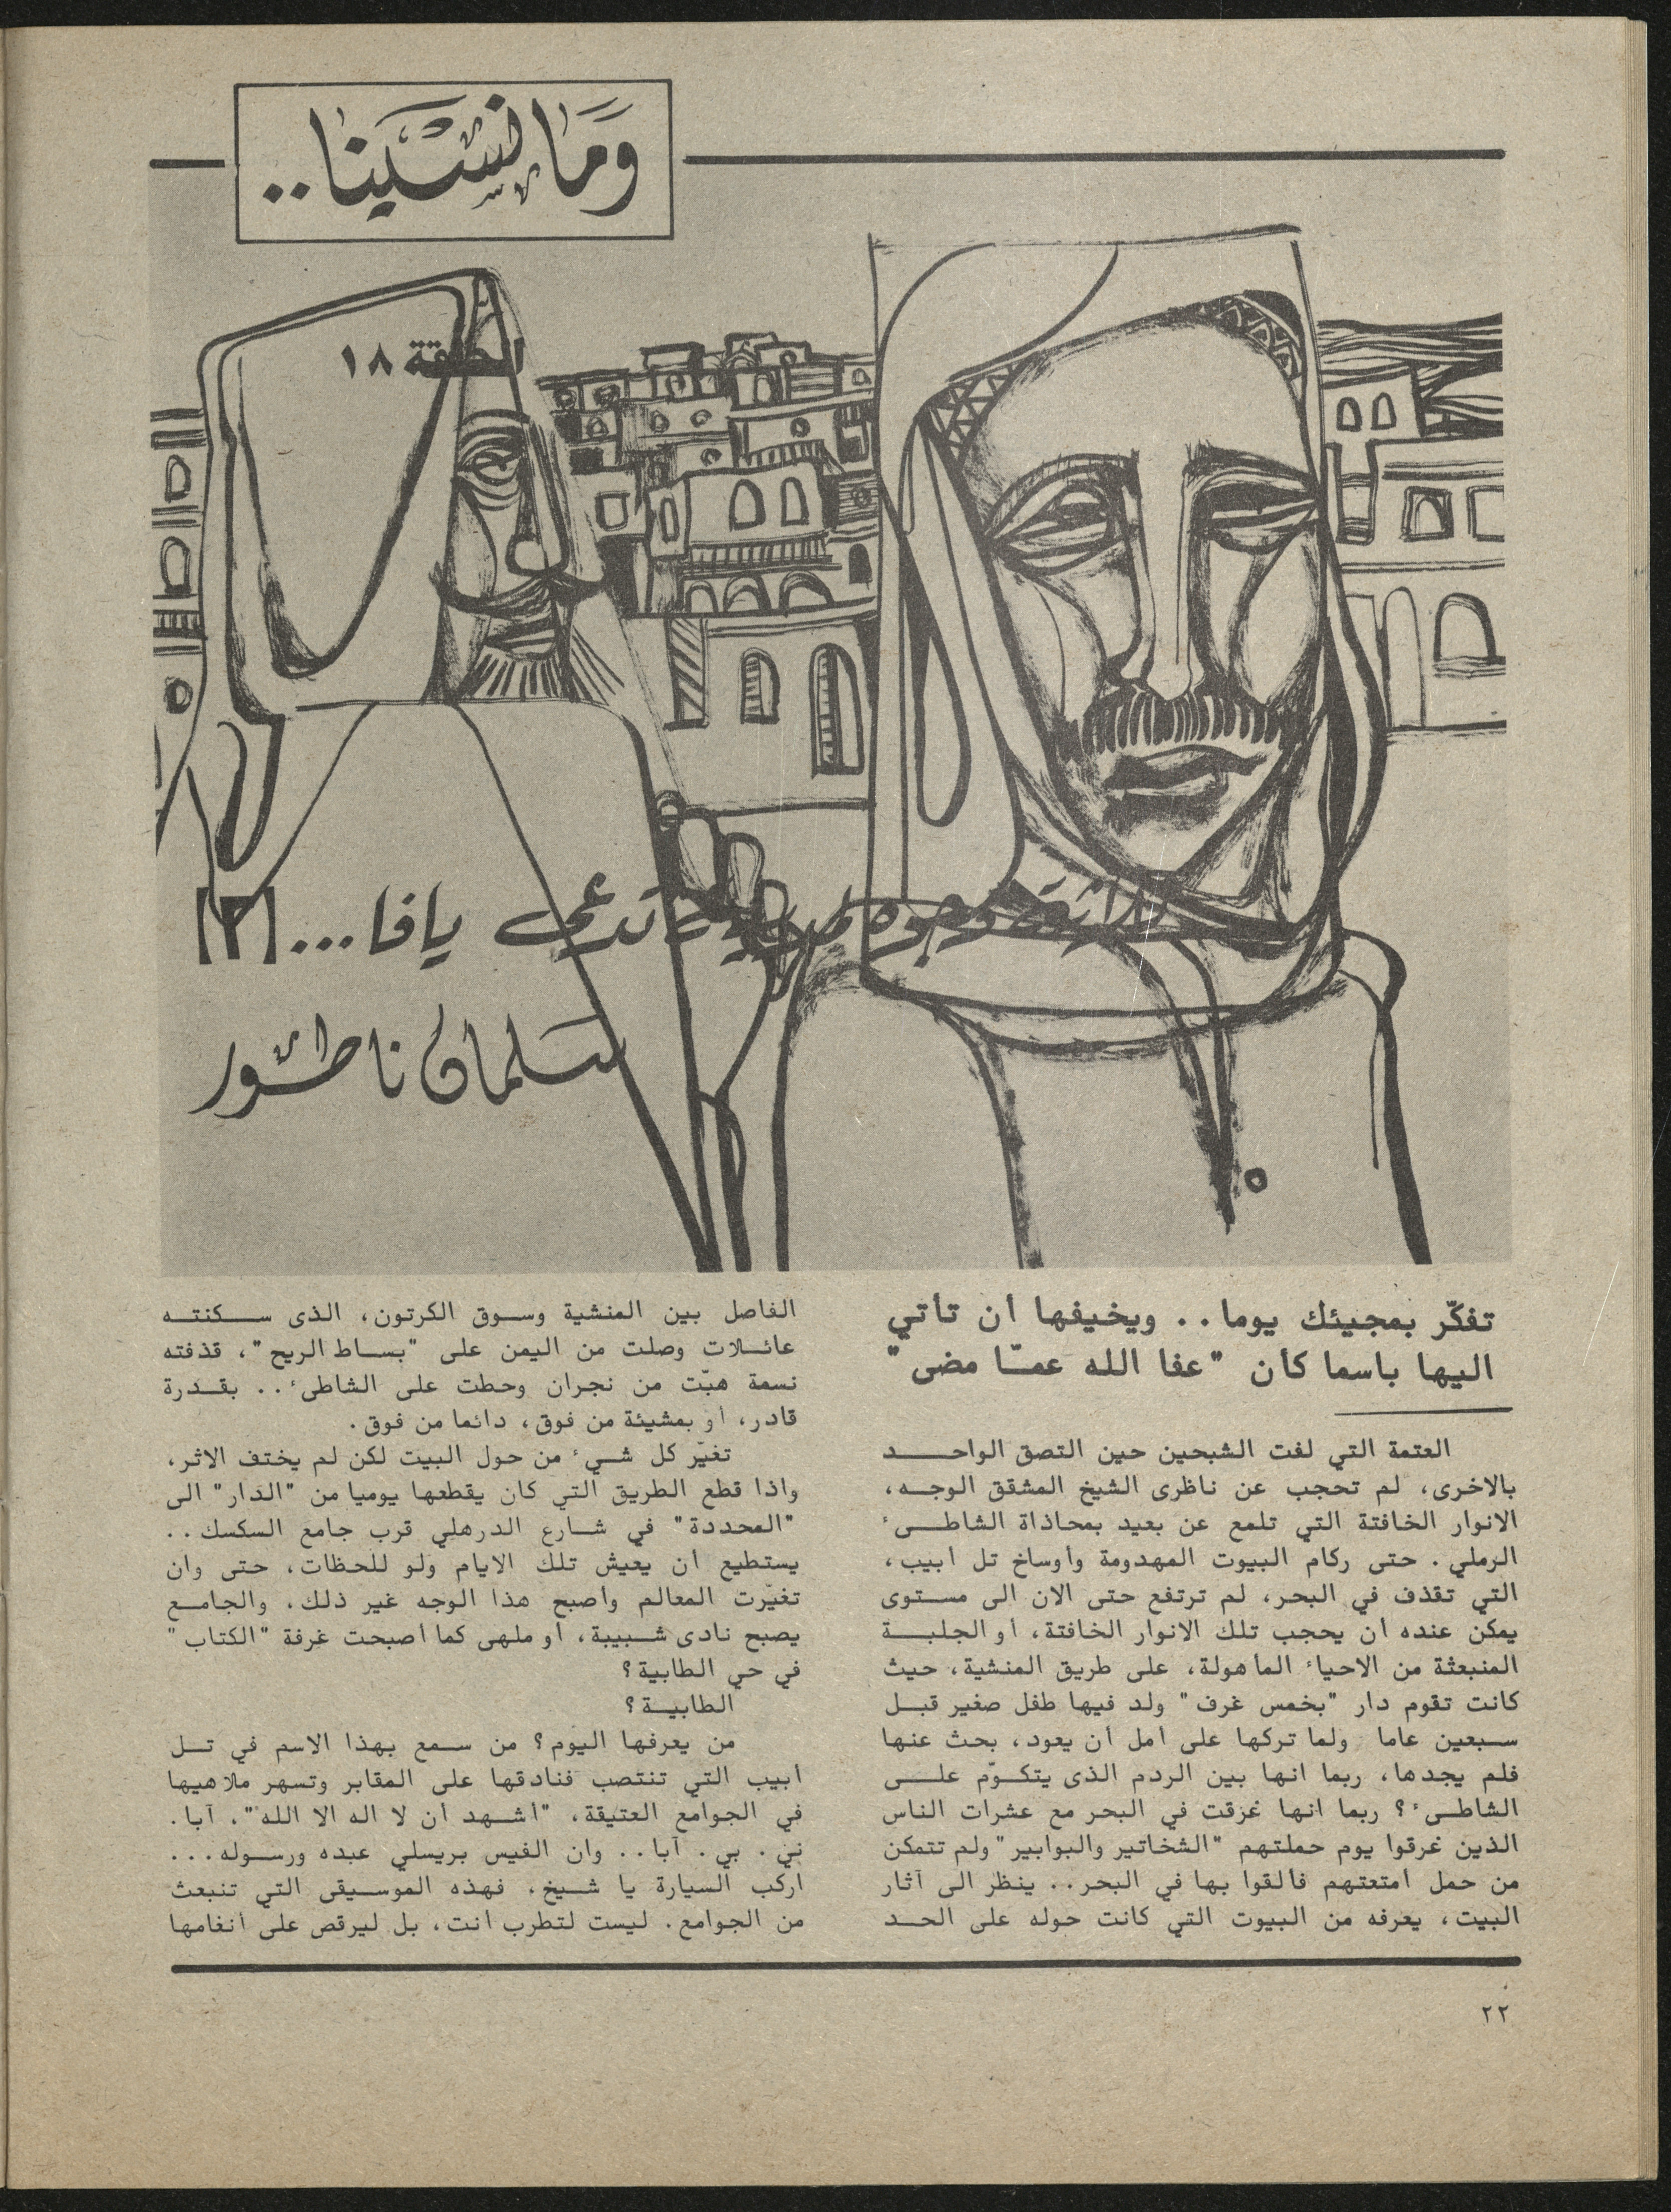 وَمَا نسَّينا..
الحلقة ١٨
وجوه تدعى يافا...[٢]
سلمان ناطور
تفكّر بمجيئك يوما.. ويخيفها أن تأتي
اليها باسما كأن "عفا الله عمـّا مضى"
العتمة التي لفت الشبحين حين التصق الواحـــد
بالاخرى، لم تحجب عن ناظرى الشيخ المشقق الوجـه،
الانوار الخافتة التي تلمع عن بعيد بمحاذاة الشاطــىء
الرملي. حتى ركام البيوت المهدومة وأوساخ تل أبيب،
التي تقذف في البحر، لم ترتفع حتى الان الى مستوى
يمكن عنده أن يحجب تلك الانوار الخافتة، أو الجلبــة
المنبعثة من الاحياء المأهولة، على طريق المنشية، حيث
كانت تقوم دار "بخمس غرف" ولد فيها طفل صغير قبـل
سـبعين عاما ولما تركها على أمل أن يعود، بحث عنها
فلم يجدها، ربما انها بين الردم الذى يتكـوّم علـــى
الشاطـىء؟ ربما انها غرقت في البحر مع عشرات الناس
الذين غرقوا يوم حملتهم "الشخاتير والبوابير" ولم تتمكن
من حمل أمتعتهم فألقوا بها في البحر.. ينظر الى آثار
البيت، يعرفه من البيوت التي كانت حوله على الحــد
الفاصل بين المنشية وسـوق الكرتون، الذى ســكنتــه
عائـلات وصلت من اليمن على "بسـاط الريح"، قذفته
نسمة هبّت من نجران وحطت على الشاطىء.. بقـدرة
قادر، أو بمشيئة من فوق، دائما من فوق.
تغيّر كل شـيء من حول البيت لكن لم يختف الاثر،
واذا قطع الطريق التي كان يقطعها يوميا من "الدار" الى
"المحددة" في شـارع الدرهلي قرب جامع السكسك..
يستطيع أن يعيش تلك الايام ولو للحظات، حتى وان
تغيّرت المعالم وأصبح هذا الوجه غير ذلك، والجامـع
يصبح نادى شـبيبة، أو ملهى كما أصبحت غرفة "الكتاب"
في حي الطابية؟
الطابيـة؟
من يعرفها اليوم؟ من سـمع بهذا الاسم في تـل
أبيب التي تنتصب فنادقها على المقابر وتسهر ملاهيها
في الجوامع العتيقة، "أشـهد أن لا اله الا الله". آبا.
ني. بي. آبا.. وان الفيس بريسلي عبده ورسـوله...
اركب السيارة يا شـيخ، فهذه الموسـيقى التي تنبعث
من الجوامع. ليست لتطرب أنت، بل ليرقص على أنغامها
٢٢